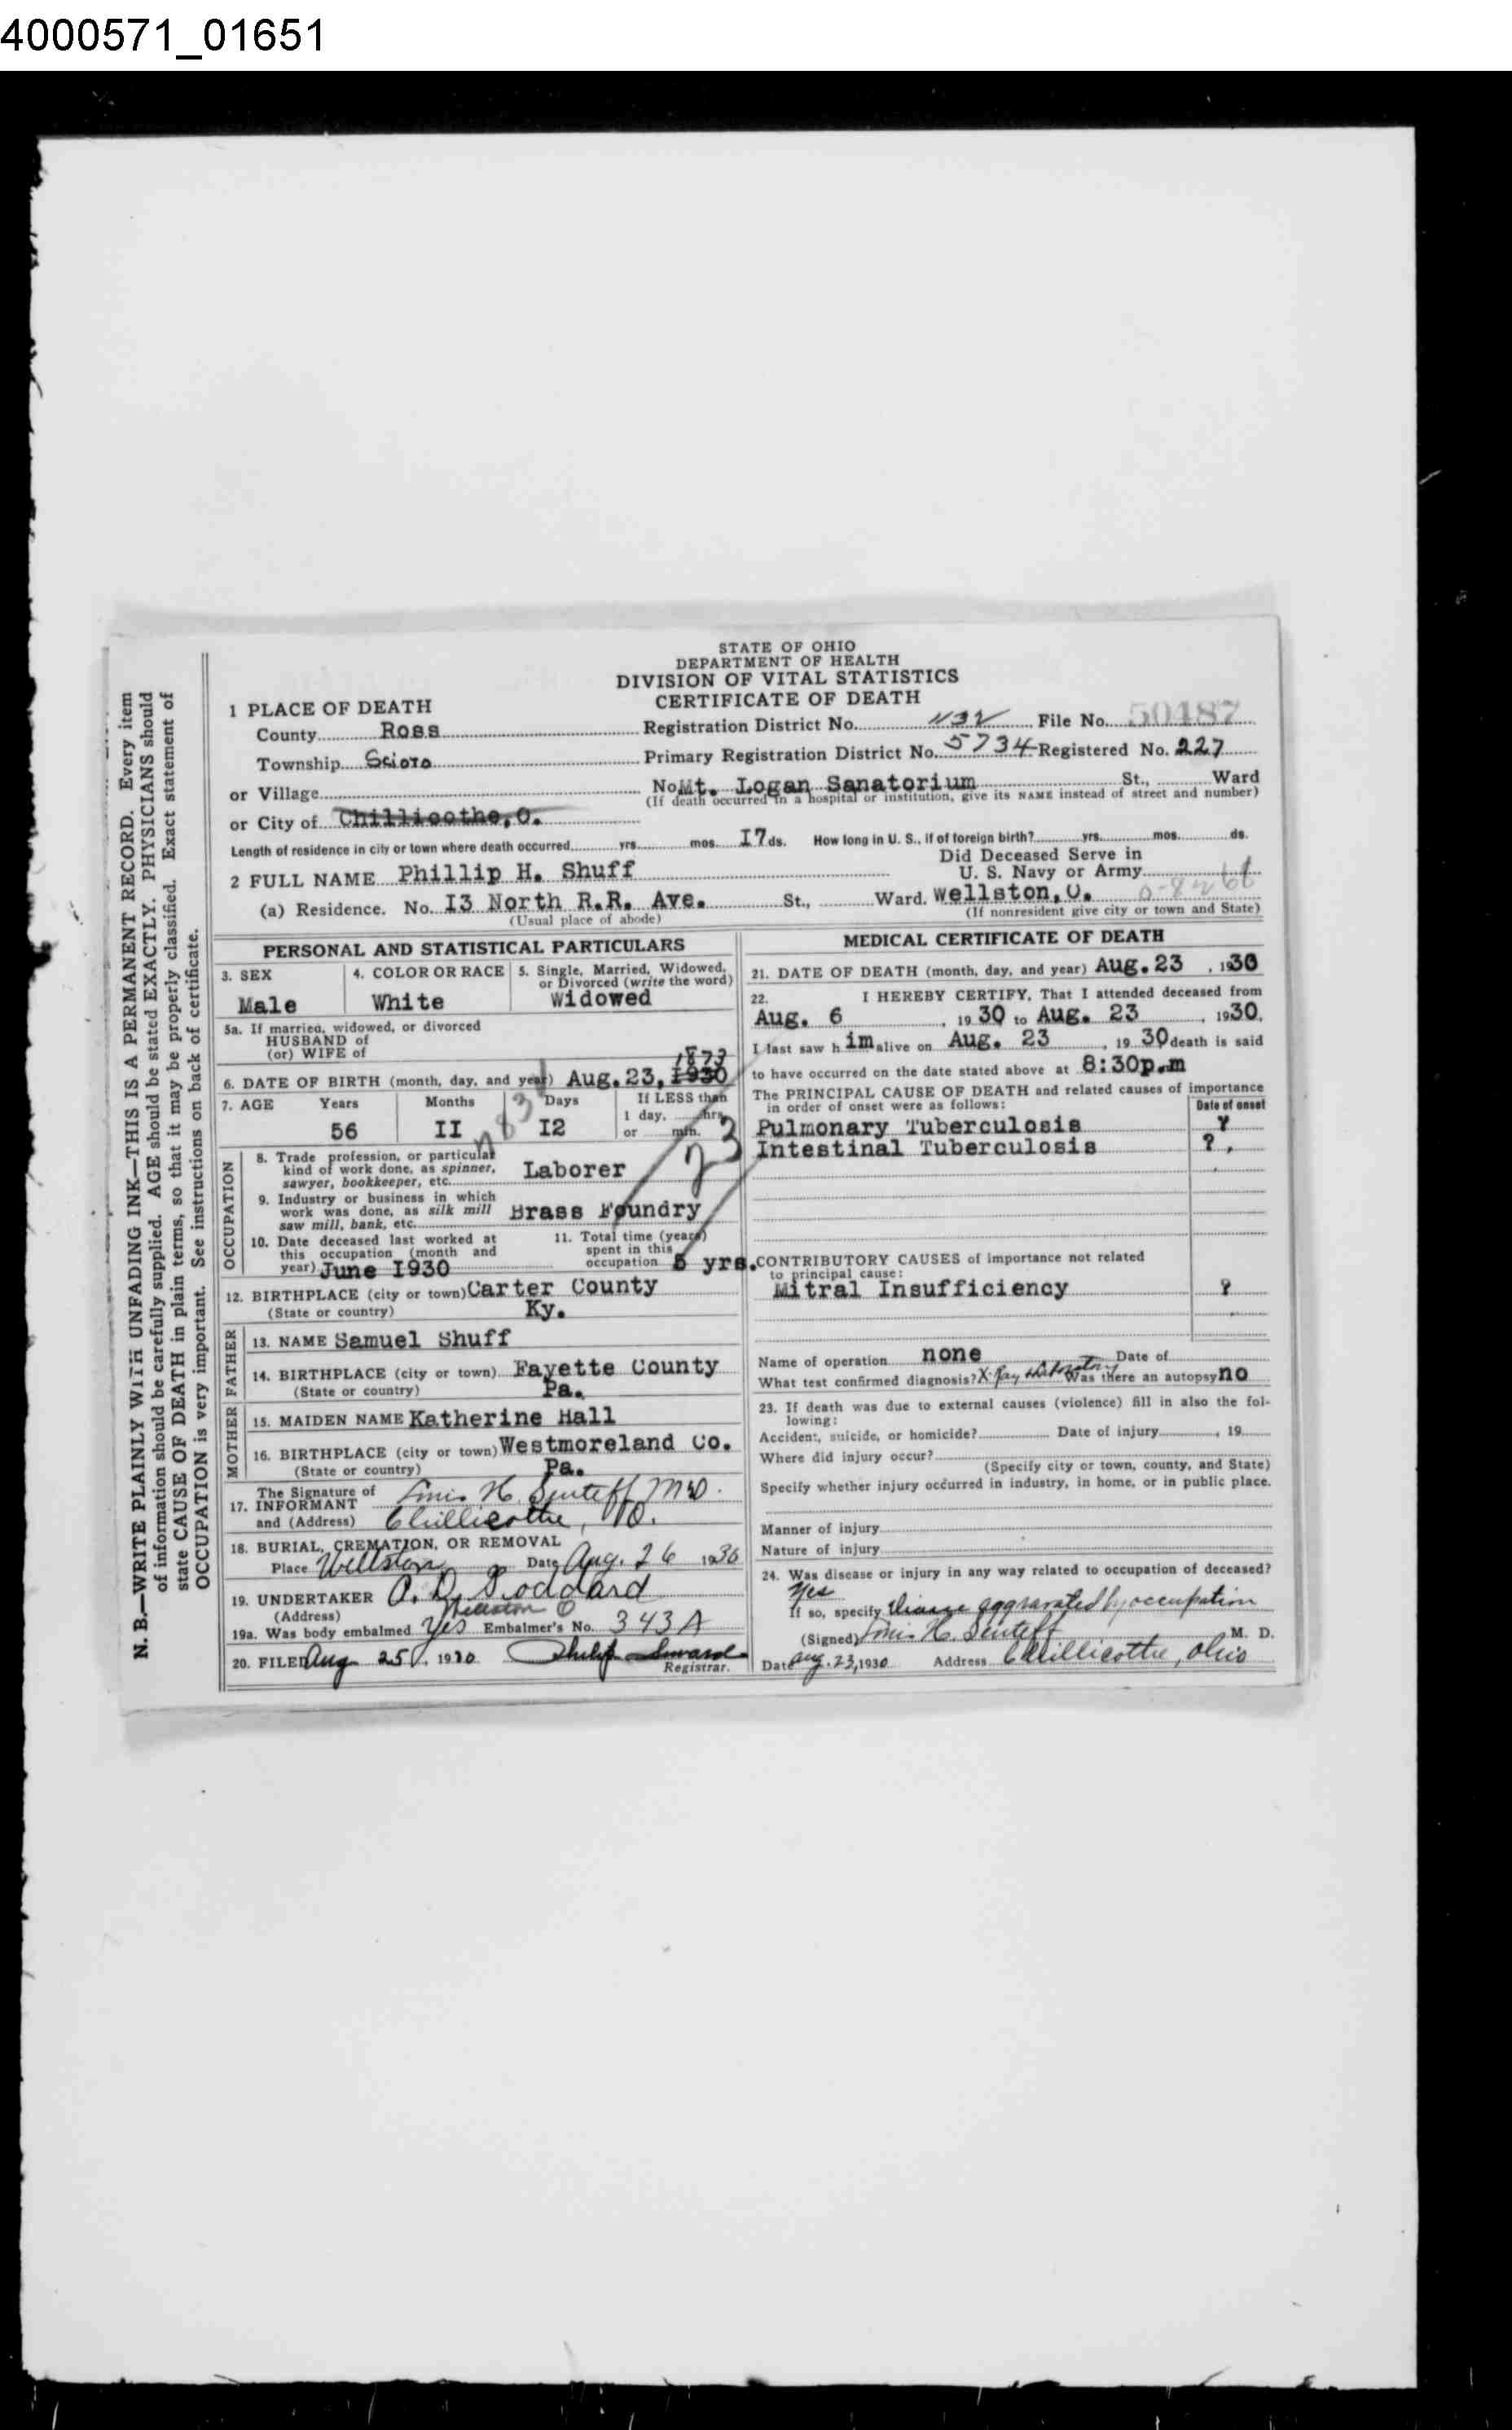 4000571_01651
N. B.—WRITE PLAINLY WITH UNFADING INK—THIS IS A PERMANENT RECORD. Every item
of information should be carefully supplied. AGE should be stated EXACTLY. PHYSICIANS should
state CAUSE OF DEATH in plain terms, so that it may be properly classified. Exact statement of
OCCUPATION is very important. See instructions on back of certificate.
STATE OF OHIO
DEPARTMENT OF HEALTH
DIVISION OF VITAL STATISTICS
CERTIFICATE OF DEATH
1 PLACE OF DEATH
County Ross Registration District No. 1132 File No. 50487
Township Scioto Primary Registration District No. 5734 Registered No. 227
or Village No. Mt. Logan Sanatorium St., Ward
(If death occurred in a hospital or institution, give its NAME instead of street and number)
or City of Chillicothe, O.
Length of residence in city or town where death occurred yrs. mos. I7 ds. How long in U. S., if of foreign birth? yrs. mos. ds.
2 FULL NAME Phillip H. Shuff Did Deceased Serve in
U. S. Navy or Army
(a) Residence. No. I3 North R.R. Ave. St., Ward. Wellston, O.
(Usual place of abode) (If nonresident give city or town and State)
PERSONAL AND STATISTICAL PARTICULARS
3. SEX 4. COLOR OR RACE 5. Single, Married, Widowed,
or Divorced (write the word)
Male White Widowed
5a. If married, widowed, or divorced
HUSBAND of
(or) WIFE of
1873
6. DATE OF BIRTH (month, day, and year) Aug. 23, 1930
7. AGE Years Months Days If LESS than
1 day, hrs.
or min.
56 II I2
23
OCCUPATION
8. Trade, profession, or particular
kind of work done, as spinner,
sawyer, bookkeeper, etc. Laborer
9. Industry or business in which
work was done, as silk mill
saw mill, bank, etc. Brass Foundry
10. Date deceased last worked at
this occupation (month and
year) June I930
11. Total time (years)
spent in this
occupation 5 yrs.
12. BIRTHPLACE (city or town) Carter County
(State or country) Ky.
FATHER
13. NAME Samuel Shuff
14. BIRTHPLACE (city or town) Fayette County
(State or country) Pa.
MOTHER
15. MAIDEN NAME Katherine Hall
16. BIRTHPLACE (city or town) Westmoreland Co.
(State or country) Pa.
The Signature of
17. INFORMANT H. M.D.
and (Address) Chillicothe, O.
18. BURIAL, CREMATION, OR REMOVAL
Place Wellston Date Aug. 26 1930
19. UNDERTAKER A. D. Goddard
(Address) Wellston O
19a. Was body embalmed Yes Embalmer's No. 343A
20. FILED Aug 25, 1930 Philip
Registrar.
MEDICAL CERTIFICATE OF DEATH
21. DATE OF DEATH (month, day, and year) Aug. 23, 1930
22. I HEREBY CERTIFY, That I attended deceased from
Aug. 6, 1930 to Aug. 23, 1930.
I last saw him alive on Aug. 23, 1930 death is said
to have occurred on the date stated above at 8:30p.m
The PRINCIPAL CAUSE OF DEATH and related causes of importance
in order of onset were as follows: Date of onset
Pulmonary Tuberculosis ?
Intestinal Tuberculosis ?
CONTRIBUTORY CAUSES of importance not related
to principal cause:
Mitral Insufficiency ?
Name of operation none Date of
What test confirmed diagnosis? X-Ray Laboratory Was there an autopsy no
23. If death was due to external causes (violence) fill in also the fol-
lowing:
Accident, suicide, or homicide? Date of injury , 19
Where did injury occur?
(Specify city or town, county, and State)
Specify whether injury occurred in industry, in home, or in public place.
Manner of injury
Nature of injury
24. Was disease or injury in any way related to occupation of deceased?
Yes
If so, specify Disease aggravated by occupation
(Signed) H. M. D.
Date Aug. 23, 1930 Address Chillicothe, Ohio